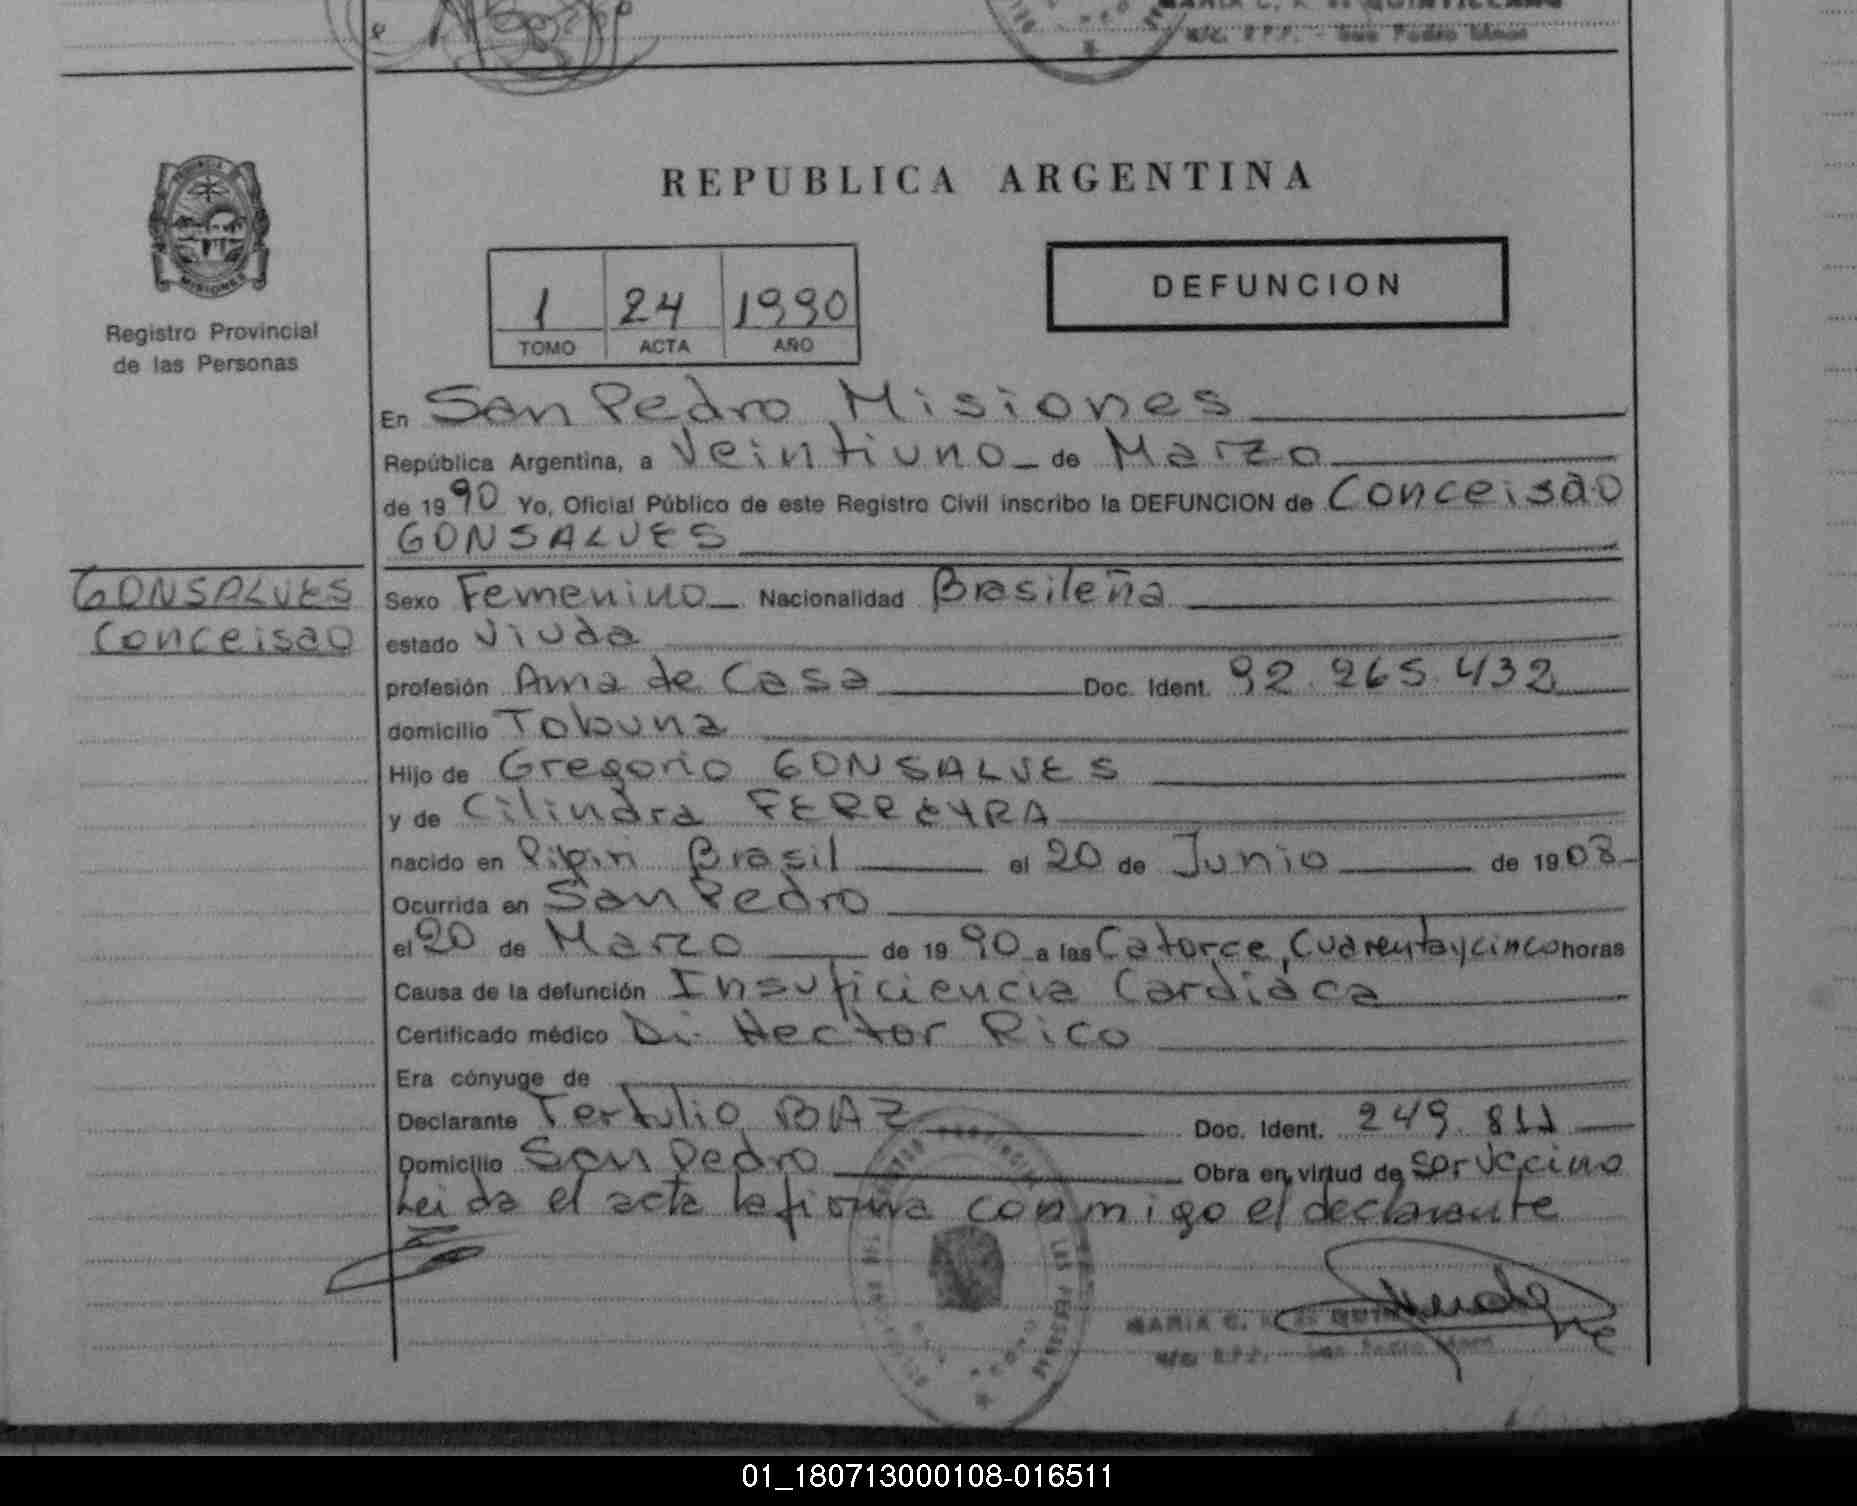 MARIA C. R. de QUINTILLANO
e/c. R.P.P. - San Pedro Mnes
REPUBLICA ARGENTINA
MISIONES
Registro Provincial
de las Personas
1 24 1990
TOMO ACTA AÑO
DEFUNCION
En San Pedro Misiones
República Argentina, a Veintiuno de Marzo
de 1990 Yo, Oficial Público de este Registro Civil inscribo la DEFUNCION de Conceisão
GONSALVES
GONSALVES
Conceisao
Sexo Femenino Nacionalidad Brasileña
estado Viuda
profesión Ama de Casa Doc. Ident. 92.265.432
domicilio Tobuna
Hijo de Gregorio GONSALVES
y de Cilindra FERREYRA
nacido en Pipiri Brasil el 20 de Junio de 1908
Ocurrida en San Pedro
el 20 de Marzo de 1990 a las Catorce, Cuarentaycinco horas
Causa de la defunción Insuficiencia Cardiaca
Certificado médico Dr. Hector Rico
Era cónyuge de
Declarante Tertulio BAZ Doc. Ident. 249.811
Domicilio San Pedro Obra en virtud de ser vecino
Leida el acta la firma conmigo el declarante
MARIA C.
San Pedro Mnes
01_180713000108-016511